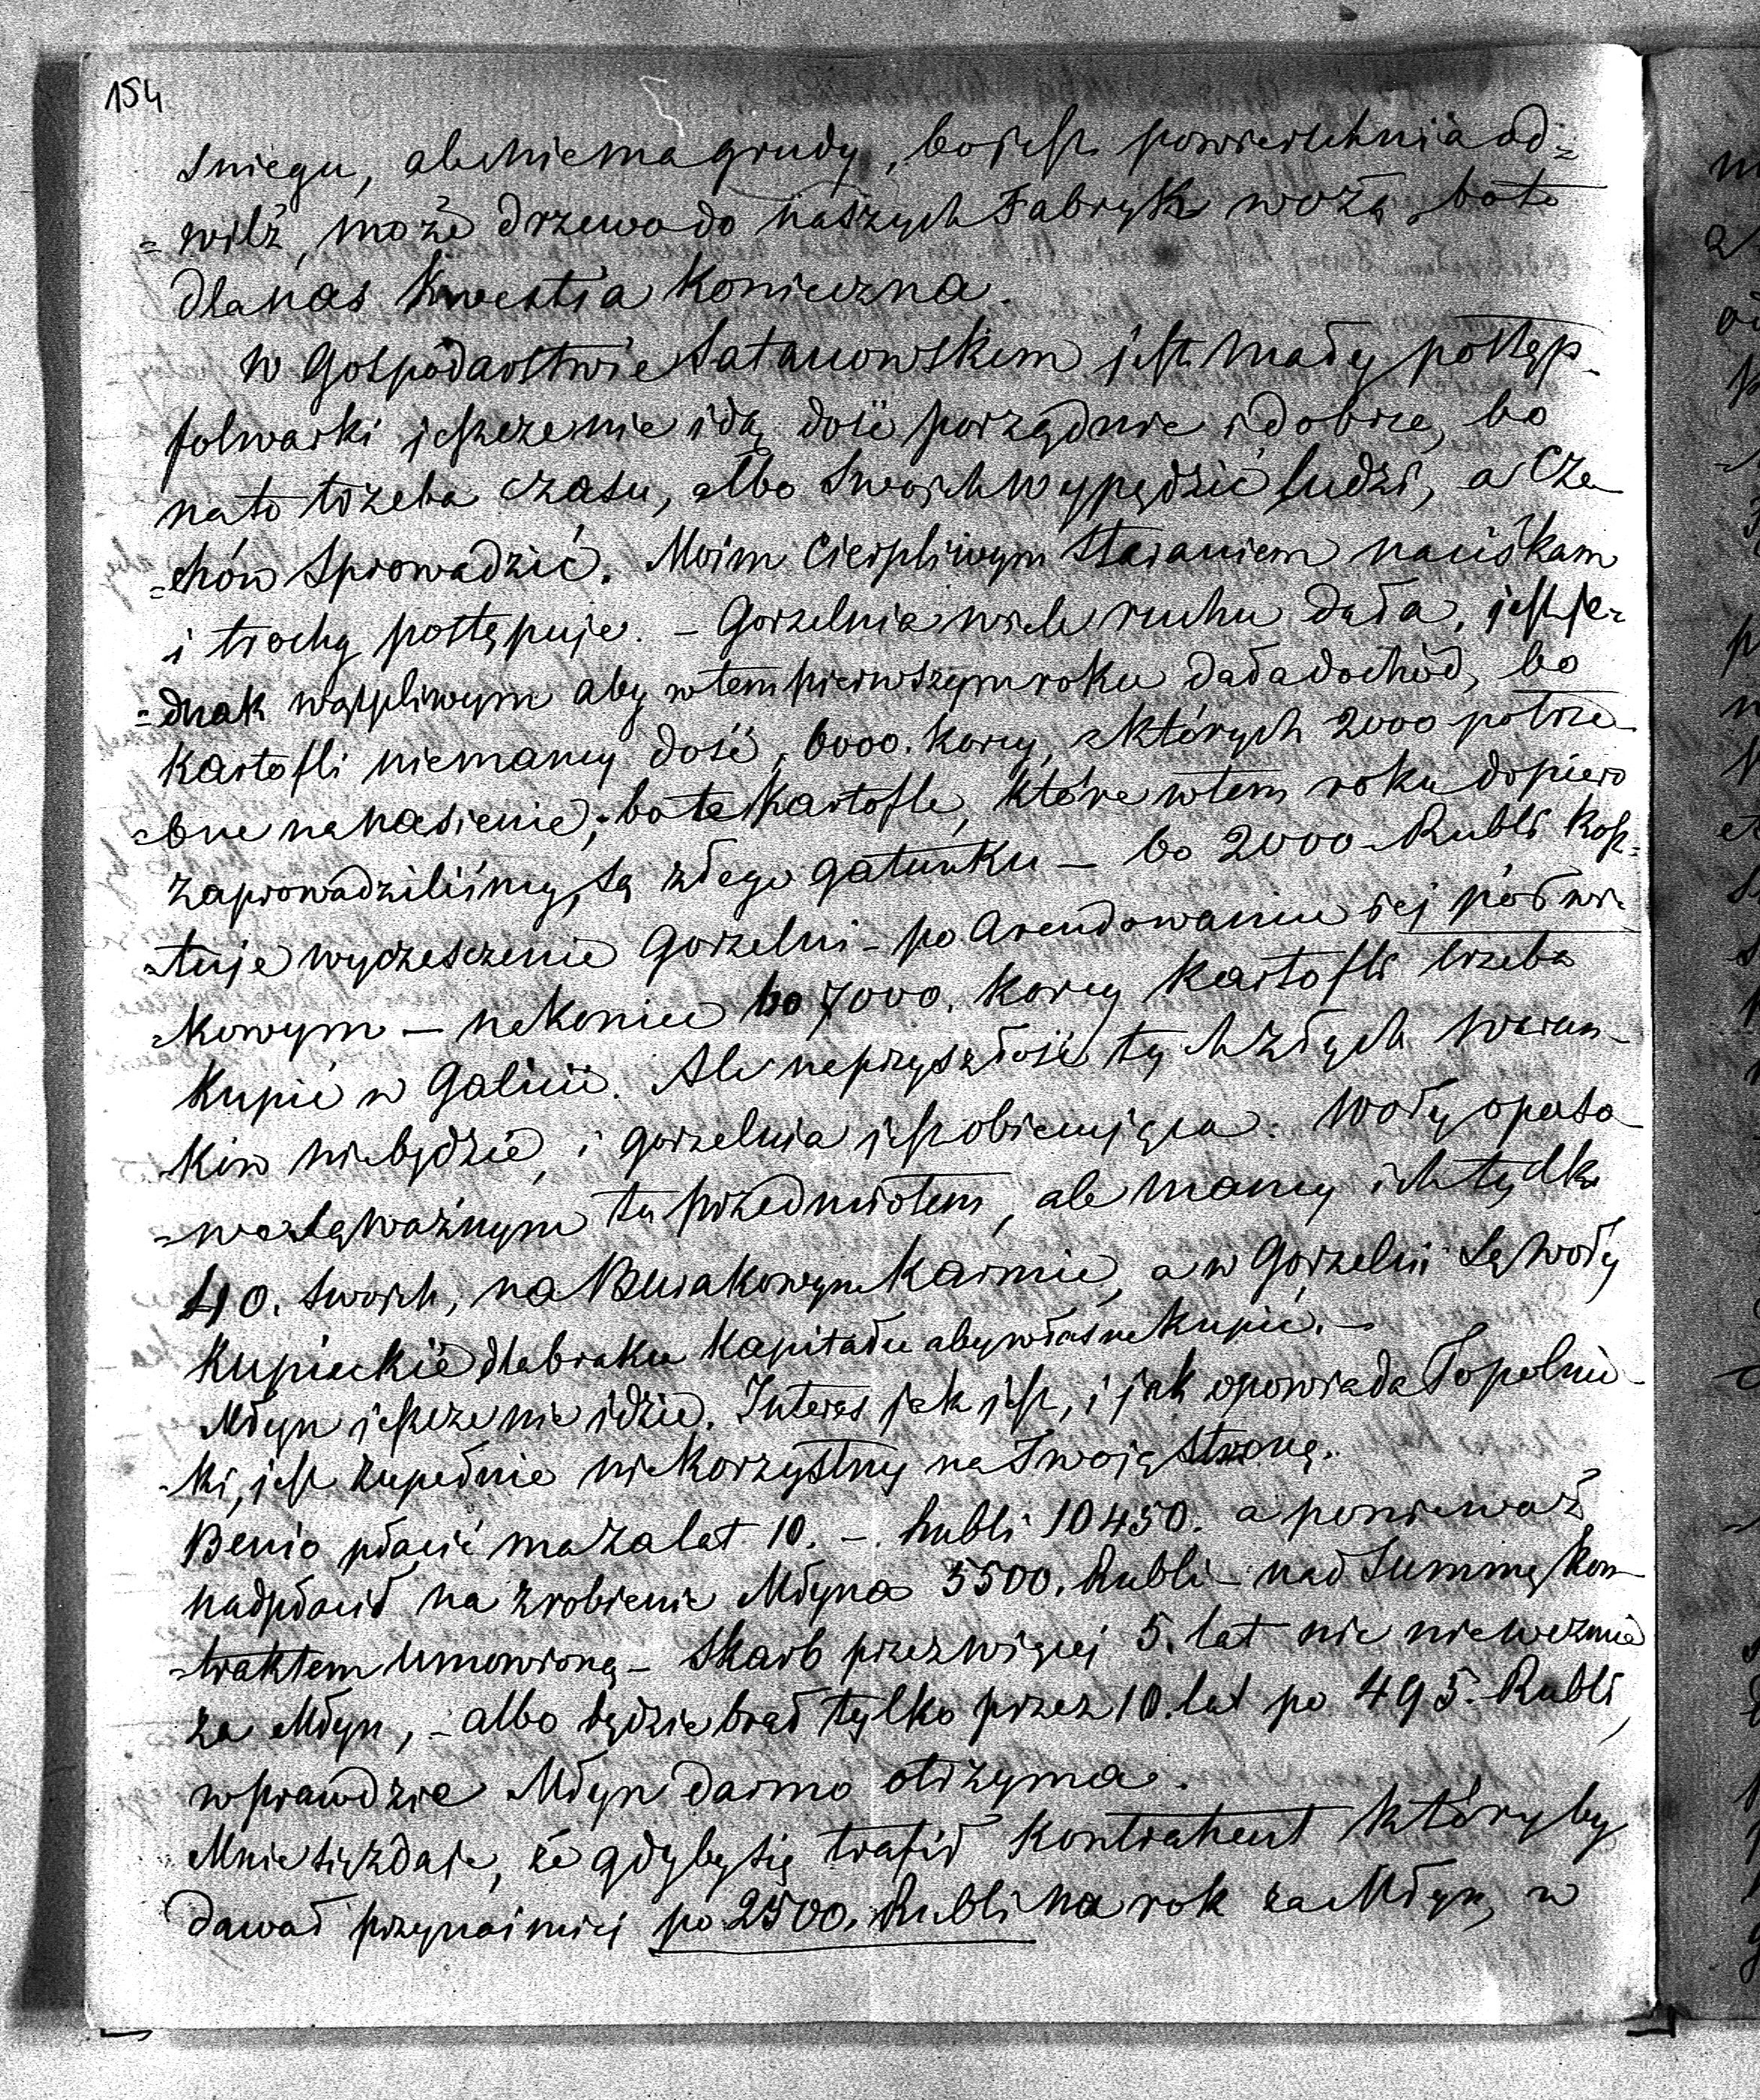 154
sniegu, ale niema grudy, bo jest powierschnia od=
=wilż, może drzewa do naszych Fabryk wożą, bo to
dla nas kwestia Konieczna.
W Gospodarstwie Satanowskiem jest mały postęp.
folwarki jeszcze nie idą dość porządnie i dobrze, bo
na to trzeba czasu, albo swoich wypędzić ludzi, a Cze
=chów sprowadzić. Moim Cierpliwym staraniem naciskam
i trochę postępuje. – Gorzelnia wiele ruchu dała, jest je=
=dnak wątpliwym aby w tem pierwszym roku dała dochód, bo
Kartofli niemamy dość, 6000. korcy, z których 2000 potrze
=bne na nasienie, bo te Kartofle, które w tem roku dopiero
zaprowadziliśmy, są złego gatunku – bo 2000 Rubli kosz=
=tuje wyczesczenie Gorzelni – po Arendowaniu jej pół wie
=kowym – nakoniec bo 7000. korcy Kartofli trzeba
Kupić w Galicii. Ale na przyszłość tych złych warun
=ków nie będzie, i gorzelnia jest obiecująca. Woły opaso
=we są ważnym tu przedmiotem, ale mamy ich tylko
40. swoich, na Burakowym Karmie, a w Gorzelni są woły
Kupieckie dla braku Kapitału aby własne kupić. –
Młyn jeszcze nie idzie. Interes jak jest, i jak opowiada Topolnic
=ki, jest zupełnie niekorzystny na Twoją stronę.
Benio płacić ma za lat 10. – Rubli 10450. a ponieważ
nadpłacił na zrobienie Młyna 5500. Rubli nad Summę kon
=traktem umowioną – Skarb przez więcej 5. lat nic nie wezmie
za Młyn, – albo będzie brał tylko przez 10. lat po 495. Rubli,
wprawdzie Młyn darmo otrzyma.
Mnie się zdaje, że gdyby się trafił Kontrahent któryby
dawał przynajmniej po 2500. Rubli na rok za Młyn, w